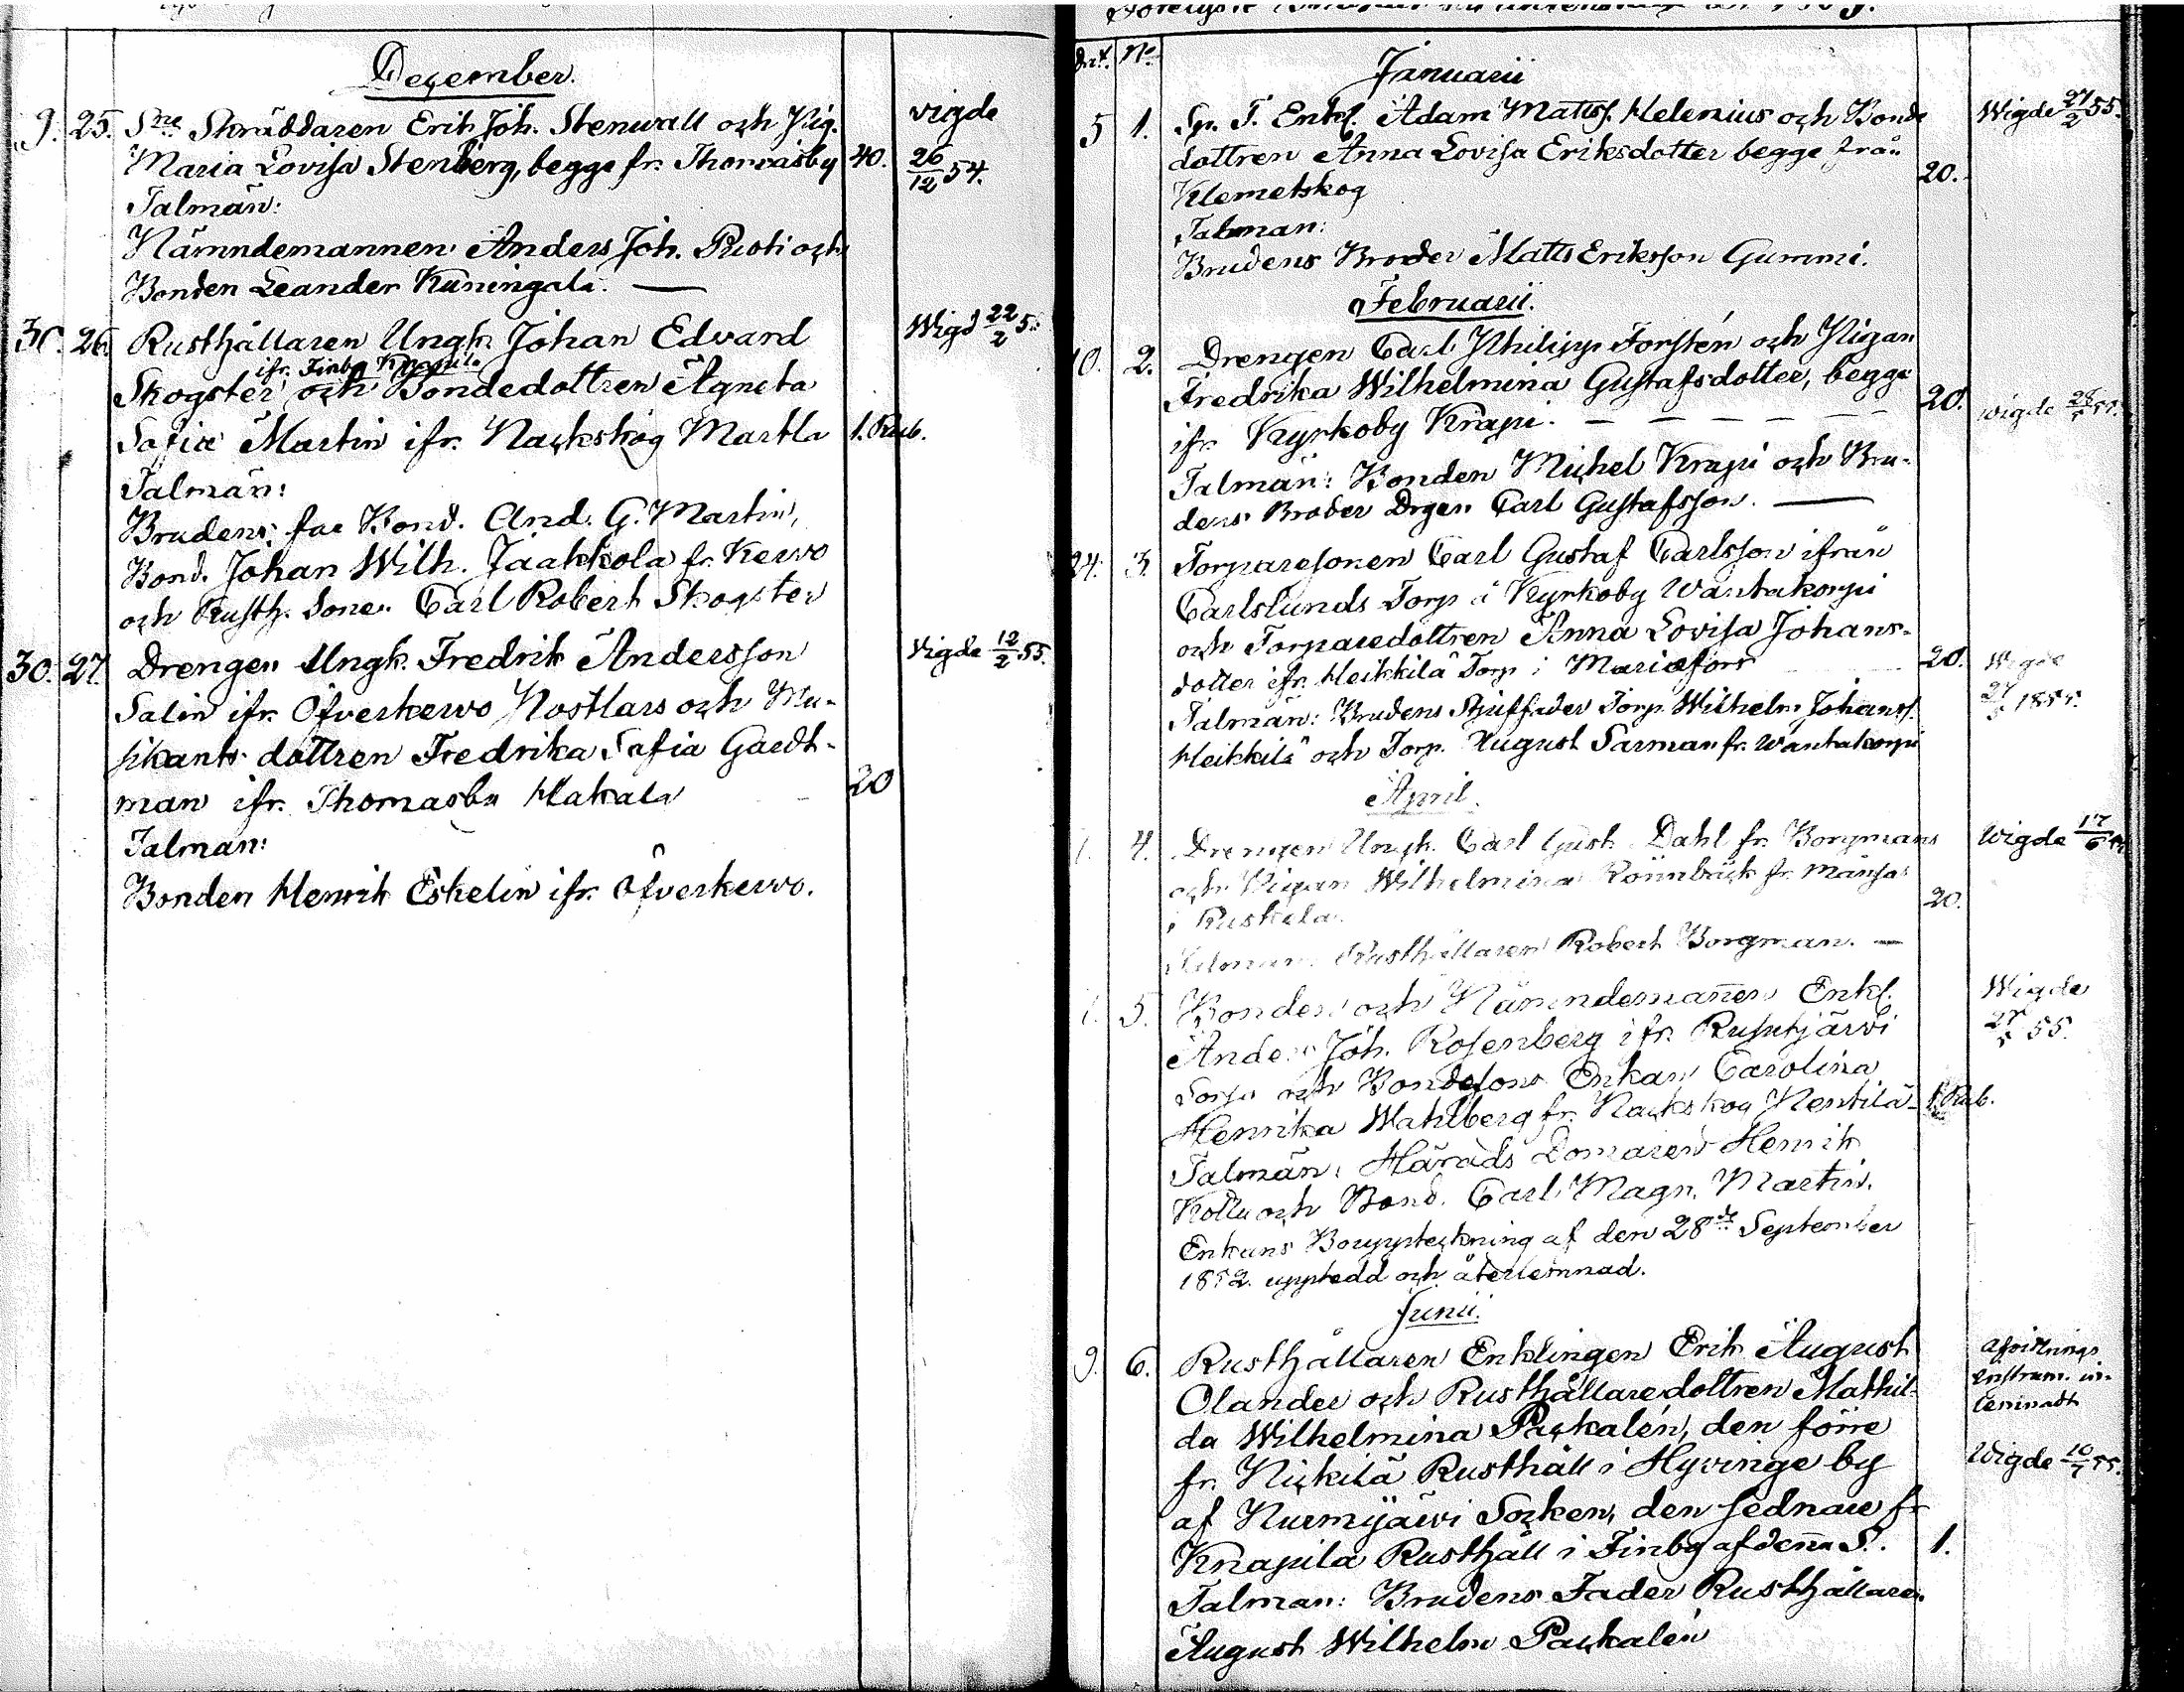 December.
9. 25. Sne Skräddaren Erik Joh. Stenwall och Pig. vigde
Maria Lovisa Stenberg, begge fr. Thomasby 40. 26/12 54.
Talmän:
Nämndemannen Anders Joh. Rusti och
Bonden Leander Kuningala. —
30. 26. Rusthållaren Ungk. Johan Edvard Wigd 22/2 55.
ifr. Finby Knapila
Skogster och Bondedottren Agneta
Sofia Martin ifr. Nackskog Martla 1. Rub.
Talmän:
Brudens far Bond. And. G. Martin,
Bond. Johan Wilh. Jaakkola fr. Kervo
och Rusth. Sonen Carl Robert Skogster
30. 27. Drengen Ungk. Fredrik Andersson vigde 12/2 55.
Salin ifr. Öfverkervo Nostlars och Mu-
sikants dottren Fredrika Sofia Gardt-
man ifr. Thomasby Hakala 20
Talman:
Bonden Henrik Eskelin ifr. Öfverkervo.
Dat. No.
Januarii
5 1. Sn. T. Enkl. Adam Mattss. Helenius och Bonde Wigde 27/2 55.
dottren Anna Lovisa Eriksdotter begge från
Klemetskog 20.
Talman:
Brudens Broder Matts Eriksson Gummi.
Februarii.
10. 2. Drengen Carl Philipp Forstén och Pigan
Fredrika Wilhelmina Gustafsdotter, begge 20. vigde
ifr. Kyrkoby Krapi. — — — — —
Talmän: Bonden Michel Krapi och Bru-
dens Broder Drgen Carl Gustafsson. —
24. 3. Torparesonen Carl Gustaf Carlsson ifrån
Carlslunds Torp å Kyrkoby Wantakorpi
och Torparedottren Anna Lovisa Johans-
dotter ifr. Heikkilä Torp i Mariefors 20. Wigde
Talmän: Brudens Stjuffader Torp. Wilhelm Johanss. 1855.
Heikkilä och Torp. August Sarman fr. Wantakorpi
April.
4. Drengen Ungk. Carl Gust. Dahl fr. Borgmans Wigde 17/6
och Pigan Wilhelmina Rönnbäck fr. Mänsas
i Ruskela. 20.
Talman: Rusthållaren Robert Borgman. —
5. Bonden och Nämndemañen Enkl. Wigde
Anders Joh. Rosenberg ifr. Rusutjärvi 55.
och Bondesons Enkan Carolina
Henrika Wahlberg fr. Nackskog Pentilä 1 Rub.
Talmän: Härads Domaren Henrik
Kottu och Bond. Carl Magn. Martin.
Enkans Bouppteckning af den 28de September
1852. upptedd och återlemnad.
Junii.
9. 6. Rusthållaren Enklingen Erik August Afvittrings
Olander och Rusthållaredottren Mathil- Instrum. in-
da Wilhelmina Packalén, den förre lemnadt
fr. Nickilä Rusthåll i Hyvinge by Wigde 10/7 55.
af Nurmijärvi Socken, den sednare fr
Knapila Rusthåll i Finby af deña S. 1.
Talman: Brudens Fader Rusthållaren
August Wilhelm Packalén